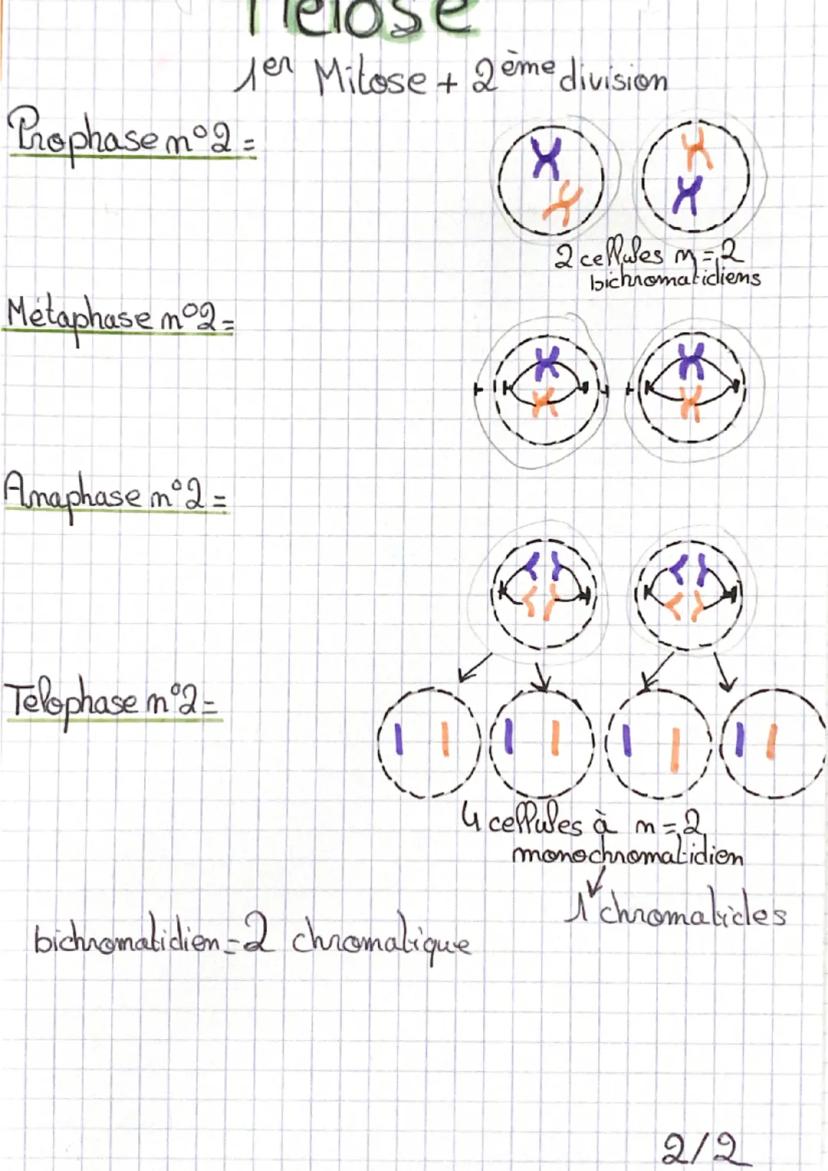 Meiose
1er Mitose + 2ème division
Prophase n°2 =
2 cellules n=2
bichromatidiens
Métaphase n°2=
Anaphase n°2 =
Telophase n°2=
4 cellules à n=2
monochromatidien
1 chromatides
bichromatidien=2 chromatique
2/2